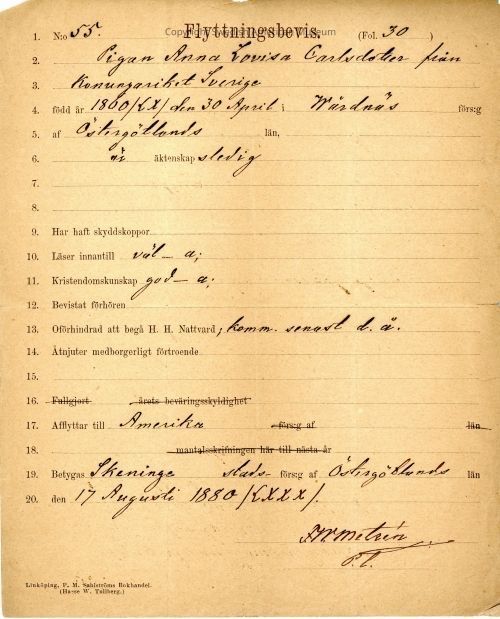 Copyright Swenson Swedish Museum
Flyttningsbevis.
1. N:o 55. (Fol. 30 )
2. Pigan Anna Lovisa Carlsdotter från
3. Konungariket Sverige
4. född år 1860 (LX) den 30 April i Wårdnäs förs:g
5. af Östergötlands län,
6. är äktenskap sledig
7.
8.
9. Har haft skyddskoppor
10. Läser innantill väl – a;
11. Kristendomskunskap god – a;
12. Bevistat förhören
13. Oförhindrad att begå H. H. Nattvard; komm. senast d. å.
14. Åtnjuter medborgerligt förtroende
15.
16. Fullgjort årets beväringsskyldighet
17. Afflyttar till Amerika förs:g af län
18. mantalsskrifningen här till nästa år
19. Betygas Skeninge stads- förs:g af Östergötlands län
20. den 17 Augusti 1880 (LXXX).
P. t.
Linköping, P. M. Sahlströms Bokhandel.
(Hasse W. Tullberg.)